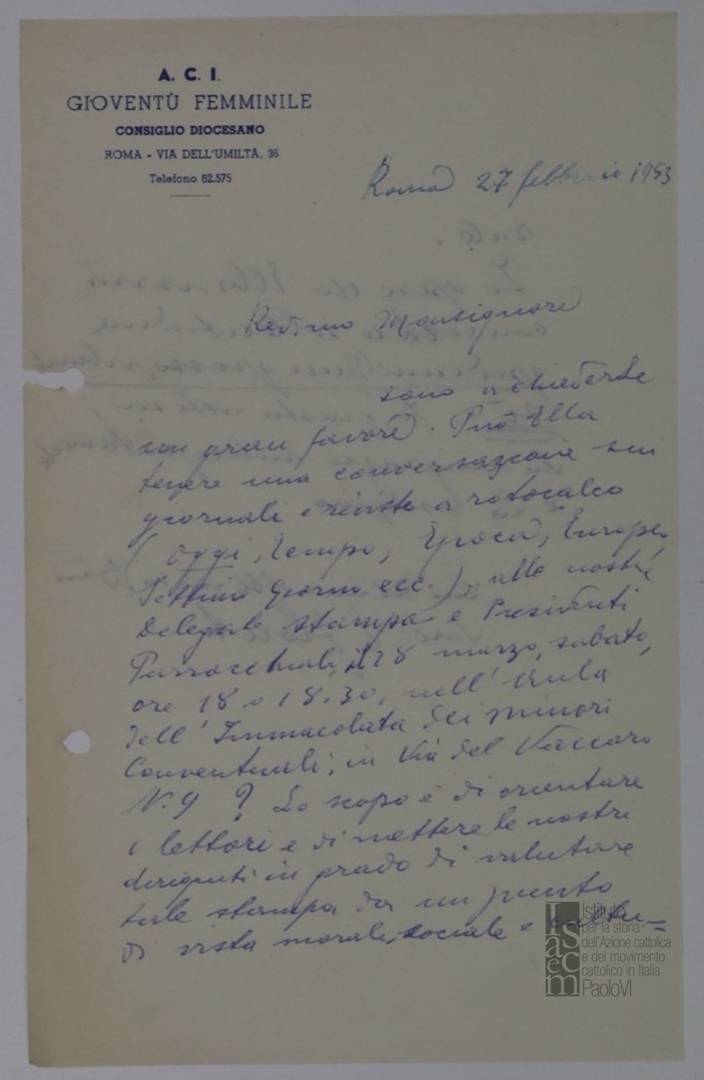 A. C. I.
GIOVENTÙ FEMMINILE
CONSIGLIO DIOCESANO
ROMA - VIA DELL'UMILTÀ, 36
Telefono 62.575
Roma 27 febbraio 1953
Rev.mo Monsignore
sono a chiederle
un gran favore. Può Ella
tenere una conversazione sui
giornali e riviste a rotocalco
(Oggi, Tempo, Epoca, Europeo
Settimo Giorno ecc.), alle nostre
Delegate stampa e Presidenti
Parrocchiali, il 28 marzo, sabato,
ore 18 o 18.30, nell'Aula
dell'Immacolata dei Minori
Conventuali, in Via del Vaccaro
N. 9 ? Lo scopo è di orientare
i lettori e di mettere le nostre
dirigenti in grado di valutare
tale stampa da un punto
di vista morale, sociale e cultu=
Istituto
per la storia
dell'Azione cattolica
e del movimento
cattolico in Italia
PaoloVI
isacem